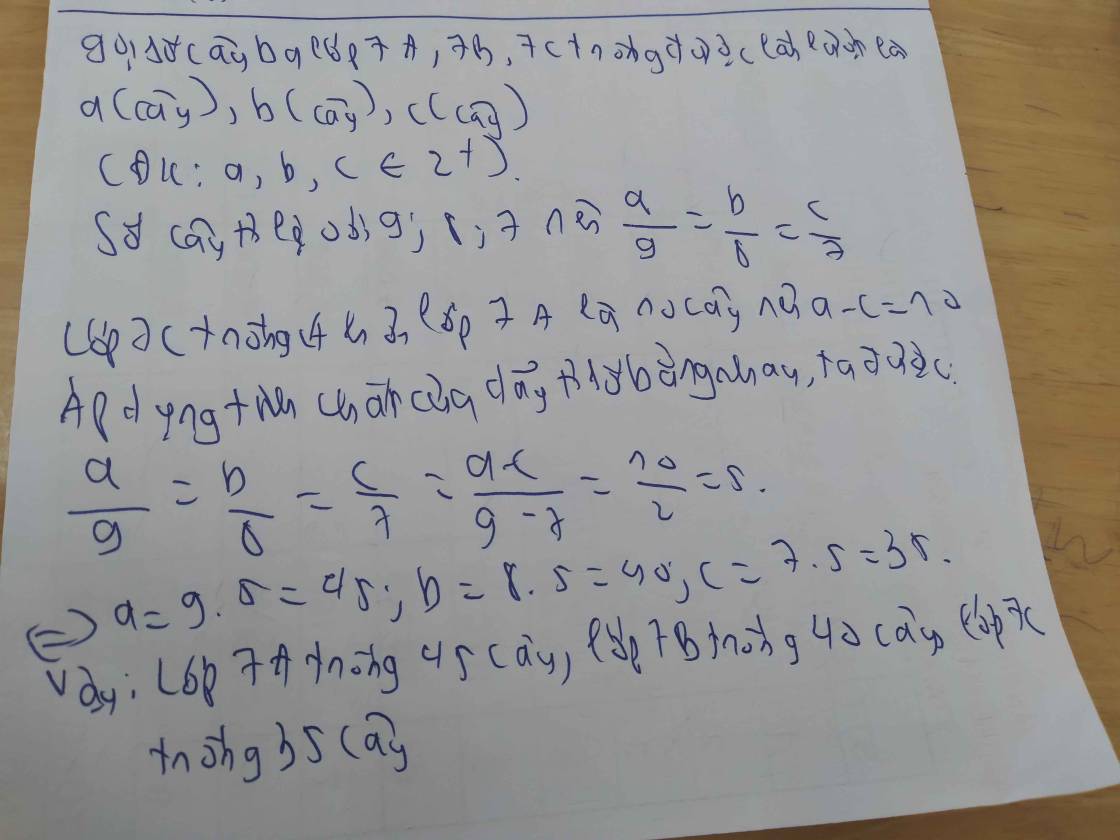 Gọi số cây ba lớp 7A, 7B, 7C trồng được lần lượt là
a (cây), b (cây), c (cây)
(ĐK: a, b, c ∈ Z+).
Số cây tỉ lệ với 9; 8; 7 nên a/9 = b/8 = c/7
Lớp 7C trồng ít hơn lớp 7A là 10 cây nên a-c=10
Áp dụng tính chất của dãy tỉ số bằng nhau, ta được:
a/9 = b/8 = c/7 = a-c/9-7 = 10/2 = 5.
=> a = 9.5 = 45; b = 8.5 = 40; c = 7.5 = 35.
Vậy: Lớp 7A trồng 45 cây, lớp 7B trồng 40 cây, lớp 7C
trồng 35 cây